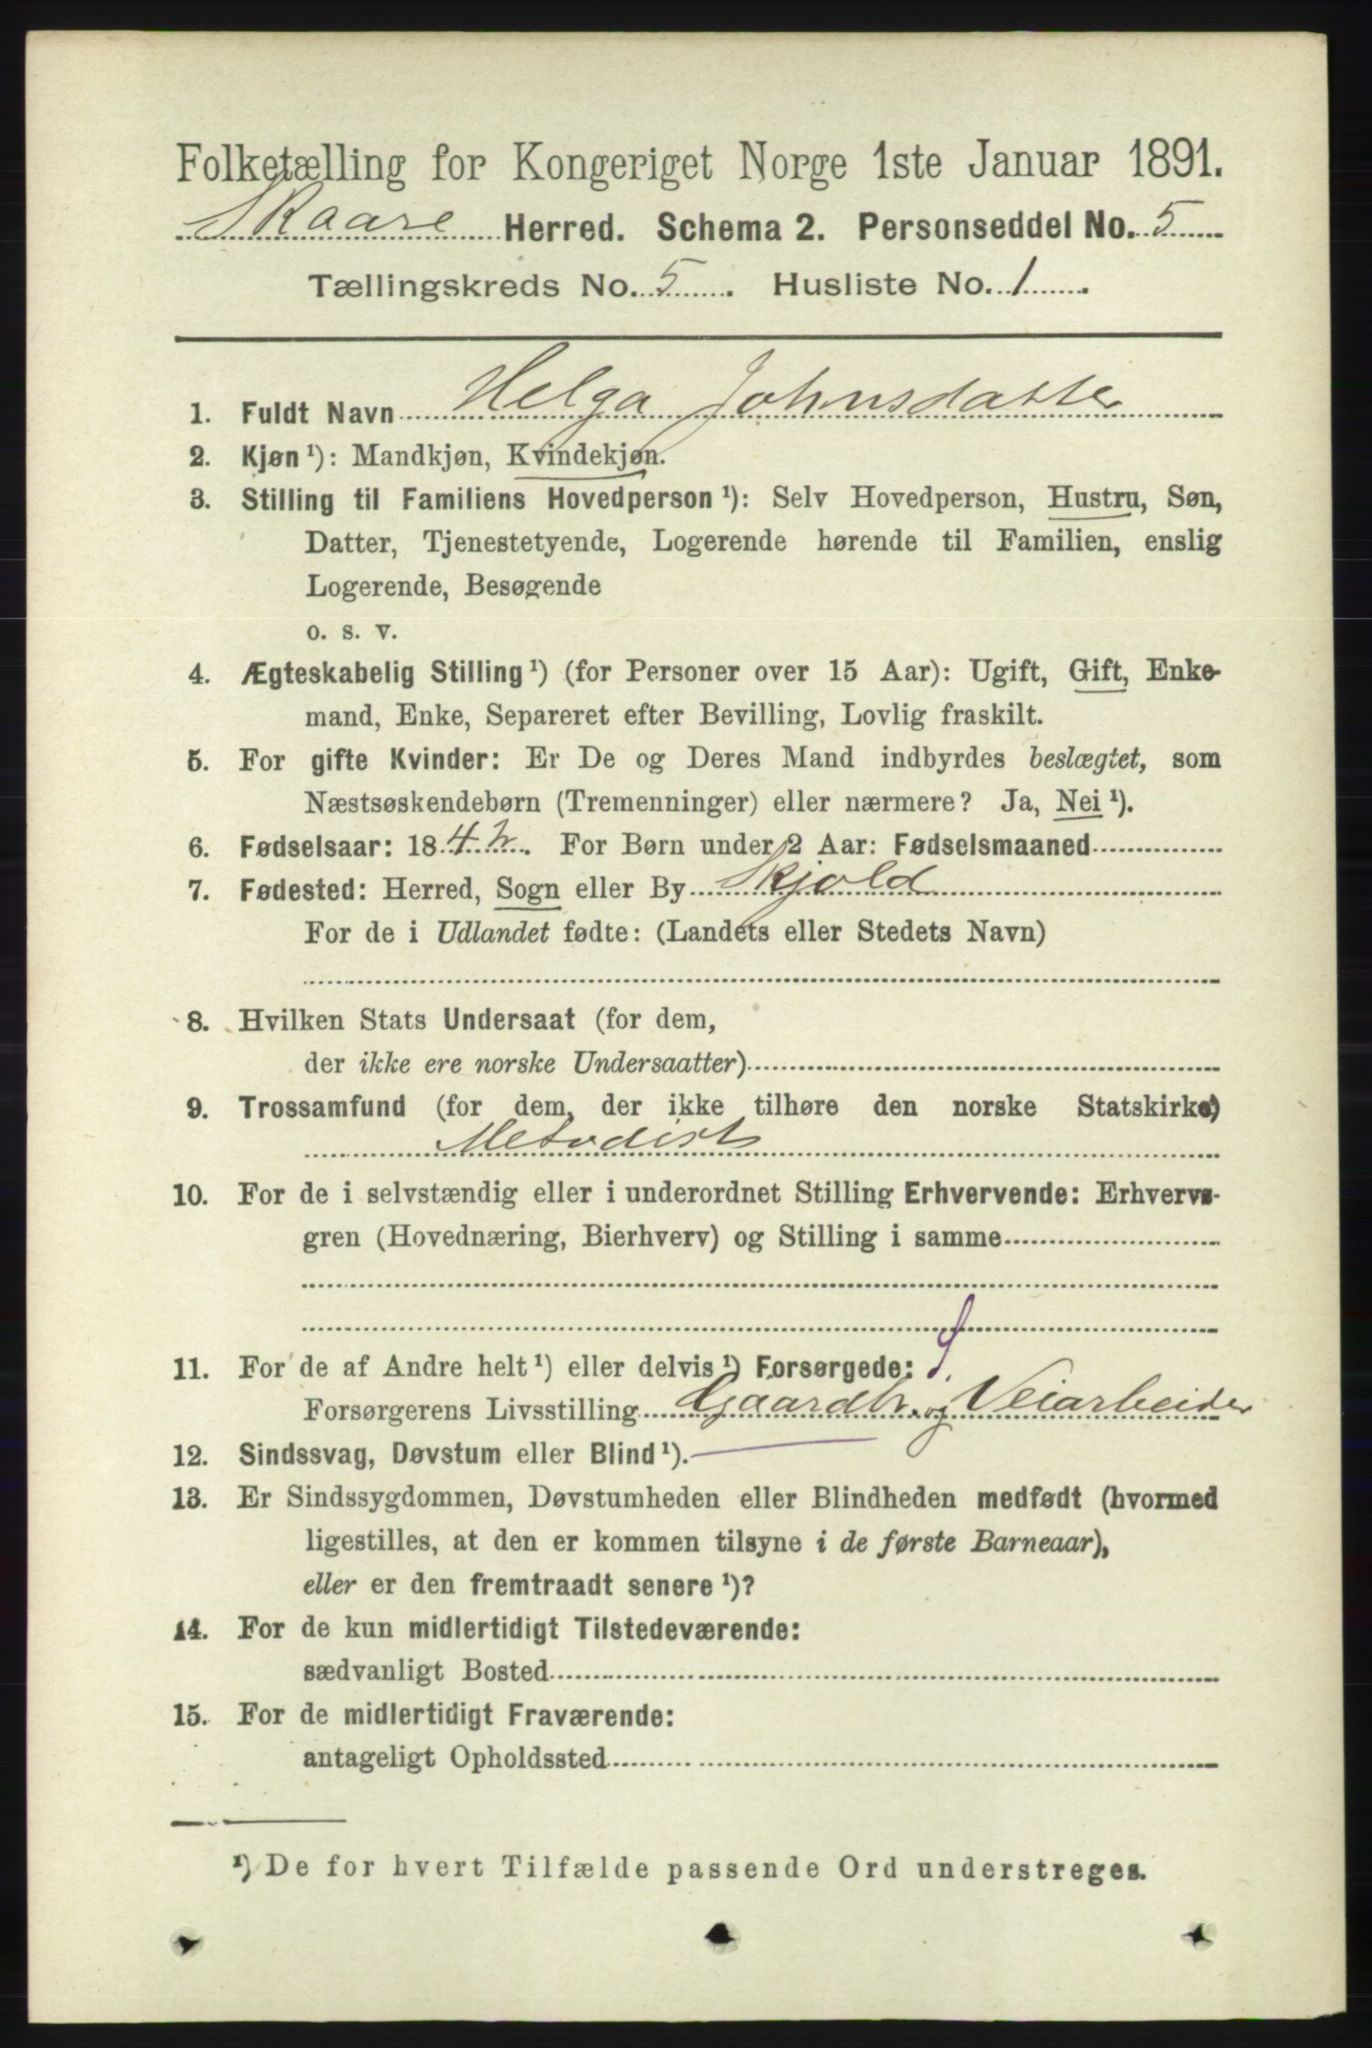 Folketælling for Kongeriget Norge 1ste Januar 1891.
Skaare Herred. Schema 2. Personseddel No. 5
Tællingskreds No. 5. Husliste No. 1.
1. Fuldt Navn Helga Johnsdatter
2. Kjøn ¹): Mandkjøn, Kvindekjøn.
3. Stilling til Familiens Hovedperson ¹): Selv Hovedperson, Hustru, Søn,
Datter, Tjenestetyende, Logerende hørende til Familien, enslig
Logerende, Besøgende
o. s. v.
4. Ægteskabelig Stilling ¹) (for Personer over 15 Aar): Ugift, Gift, Enke-
mand, Enke, Separeret efter Bevilling, Lovlig fraskilt.
5. For gifte Kvinder: Er De og Deres Mand indbyrdes beslægtet, som
Næstsøskendebørn (Tremenninger) eller nærmere? Ja, Nei ¹).
6. Fødselsaar: 1842. For Børn under 2 Aar: Fødselsmaaned
7. Fødested: Herred, Sogn eller By Skjold
For de i Udlandet fødte: (Landets eller Stedets Navn)
8. Hvilken Stats Undersaat (for dem,
der ikke ere norske Undersaatter)
9. Trossamfund (for dem, der ikke tilhøre den norske Statskirke)
Metodist
10. For de i selvstændig eller i underordnet Stilling Erhvervende: Erhvervs-
gren (Hovednæring, Bierhverv) og Stilling i samme
11. For de af Andre helt ¹) eller delvis ¹) Forsørgede:
Forsørgerens Livsstilling Gaardbr. og Veiarbeider
12. Sindssvag, Døvstum eller Blind ¹).
13. Er Sindssygdommen, Døvstumheden eller Blindheden medfødt (hvormed
ligestilles, at den er kommen tilsyne i de første Barneaar),
eller er den fremtraadt senere ¹)?
14. For de kun midlertidigt Tilstedeværende:
sædvanligt Bosted
15. For de midlertidigt Fraværende:
antageligt Opholdssted
¹) De for hvert Tilfælde passende Ord understreges.